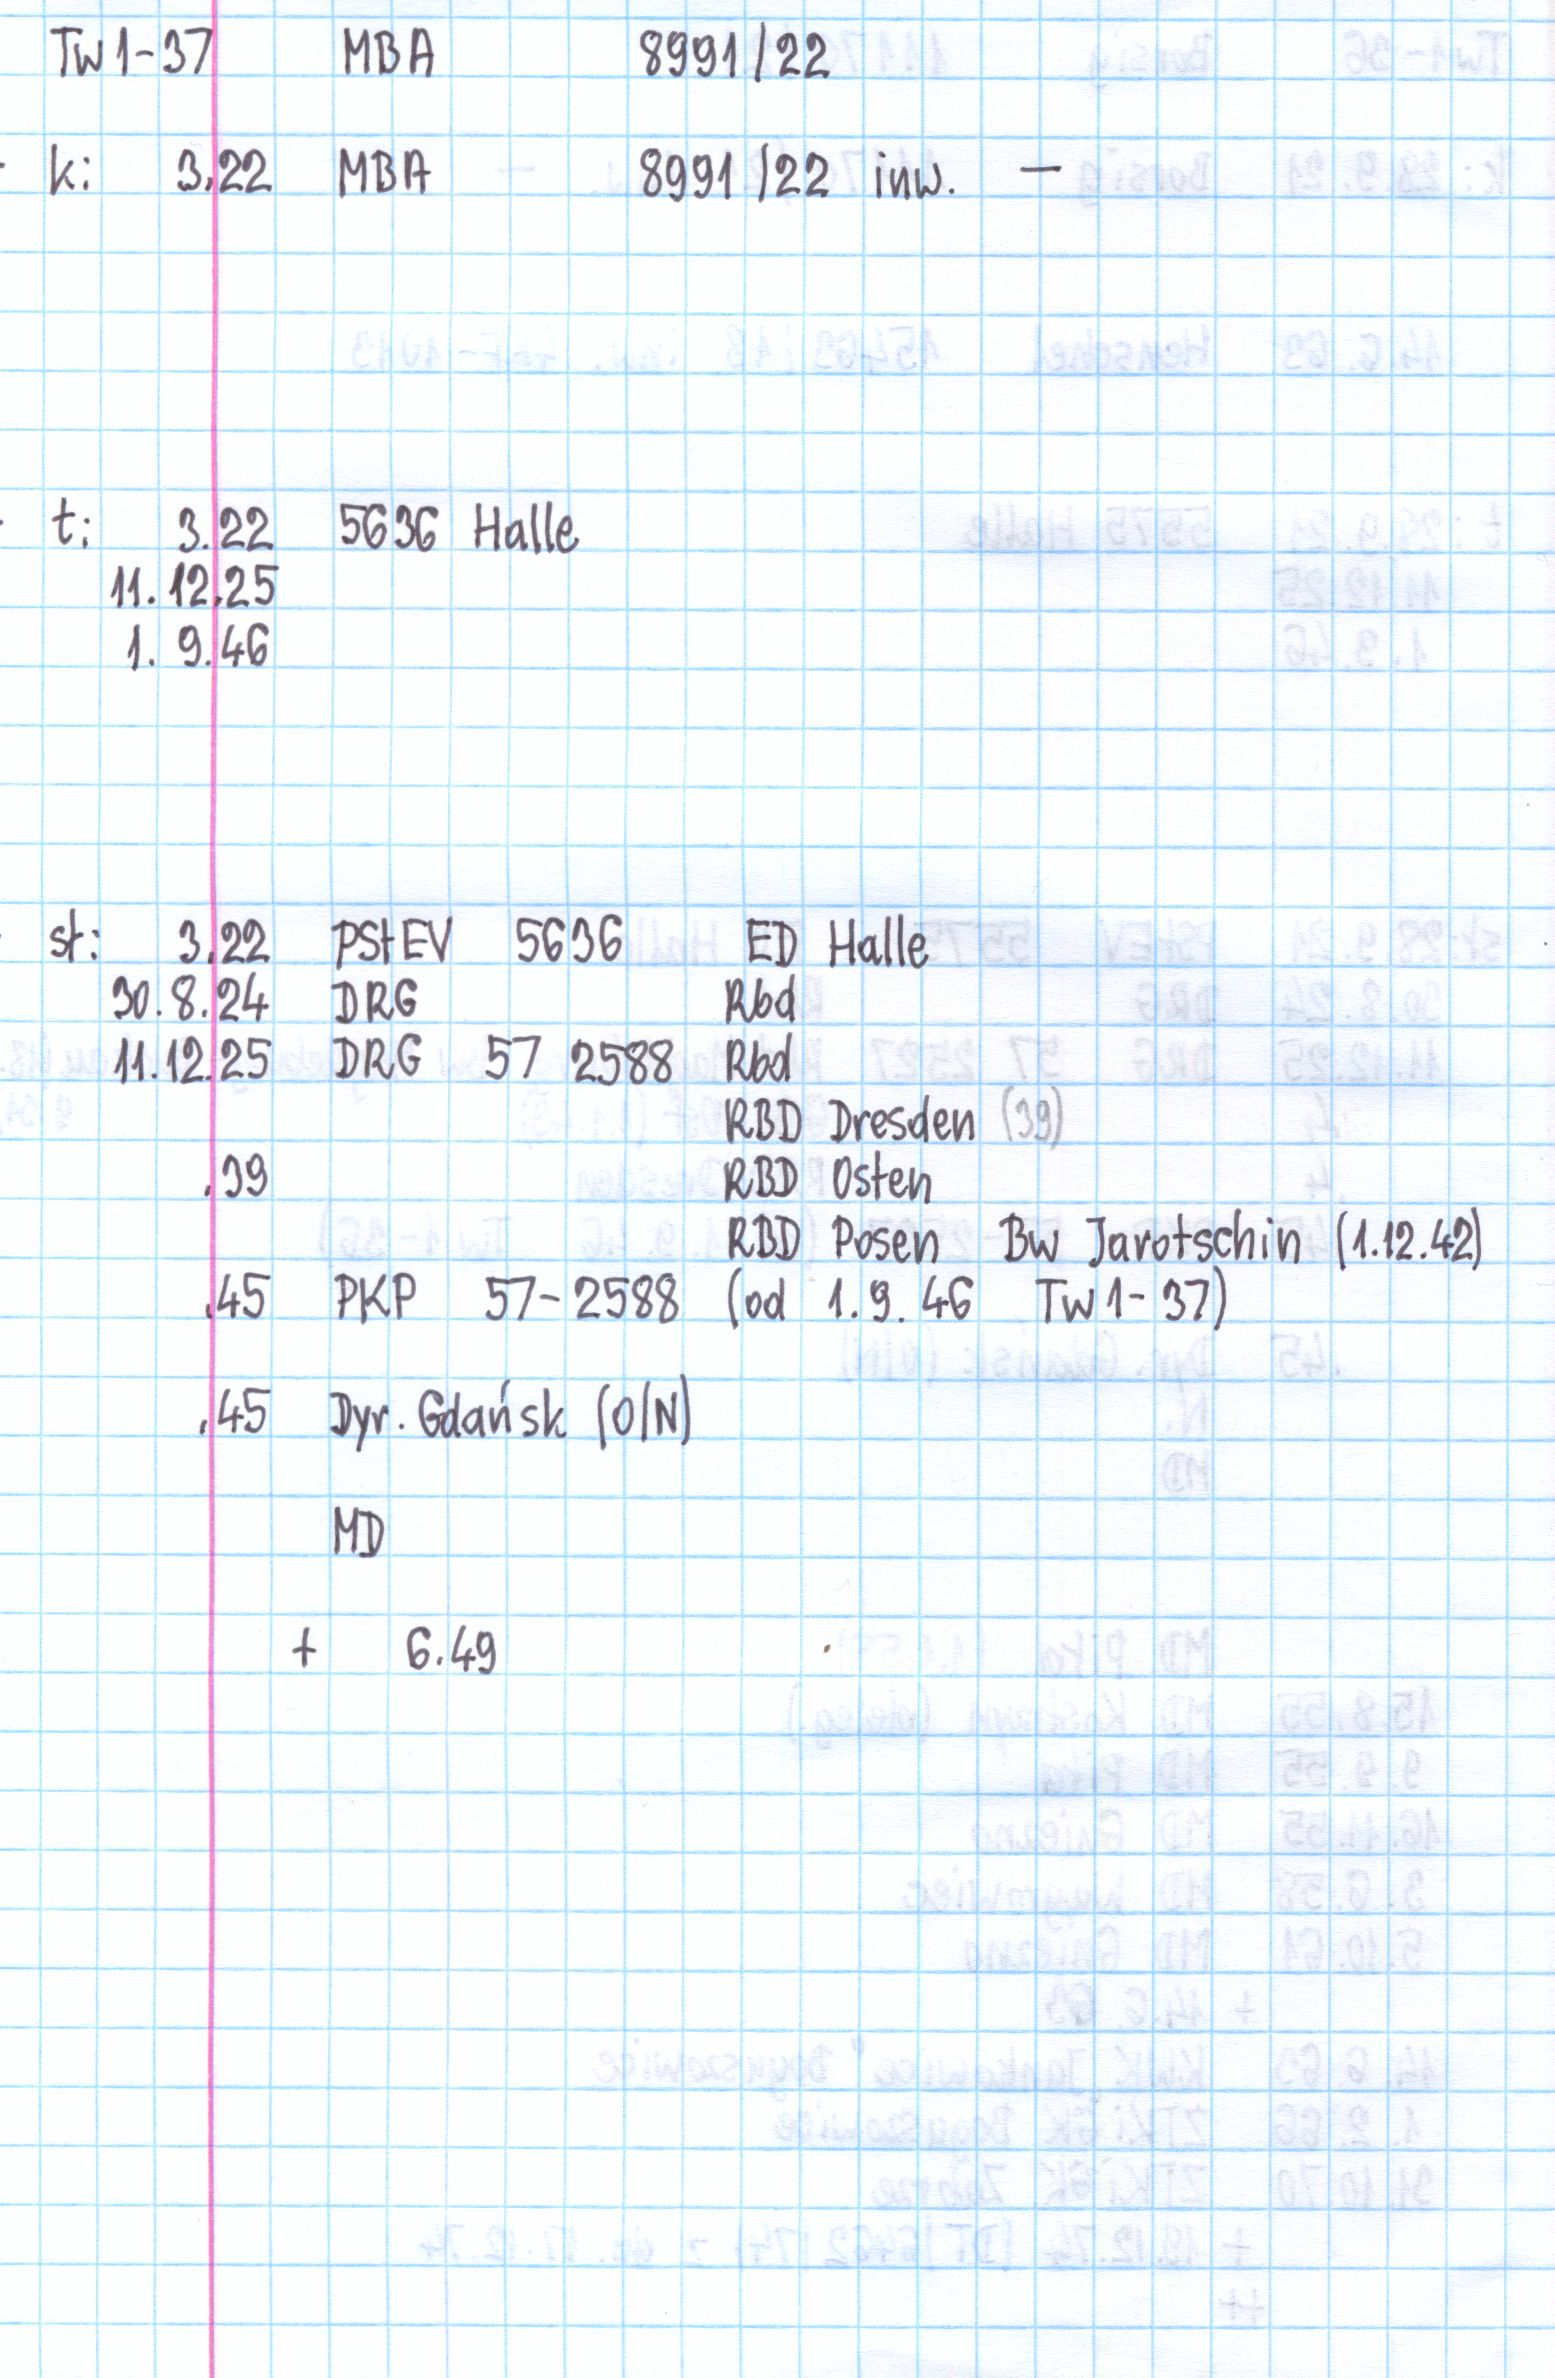 Tw1-37 MBA 8991/22
k: 3.22 MBA 8991/22 inw. —
t: 3.22 5636 Halle
11.12.25
1. 9.46
st: 3.22 PStEV 5636 ED Halle
30.8.24 DRG Rbd
11.12.25 DRG 57 2588 Rbd
RBD Dresden (39)
.39 RBD Osten
RBD Posen Bw Jarotschin (1.12.42)
.45 PKP 57-2588 (od 1.9.46 Tw1-37)
.45 Dyr. Gdańsk (O/N)
MD
+ 6.49